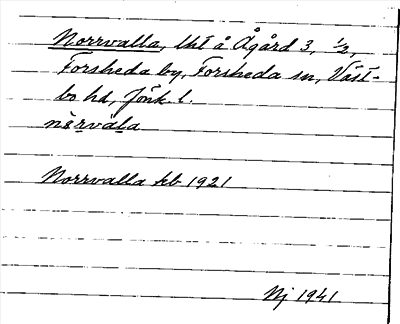 Norrvalla, lht å Ågård 3, ½,
Forsheda by, Forsheda sn, Väst-
bo hd, Jönk l.
Norrvalla kb 1921
Nj 1941